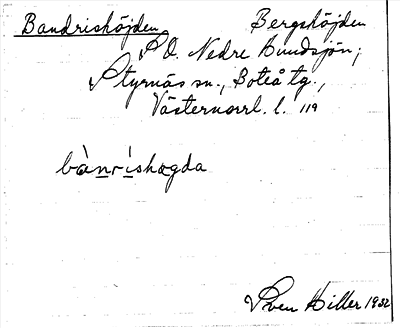 Bandrishöjden Bergshöjden
S O. Nedre Bundsjön,
Styrnäs sn., Boteå tg.,
Västernorrl. l. 119
bànrishøgda
Sven Hiller 1932